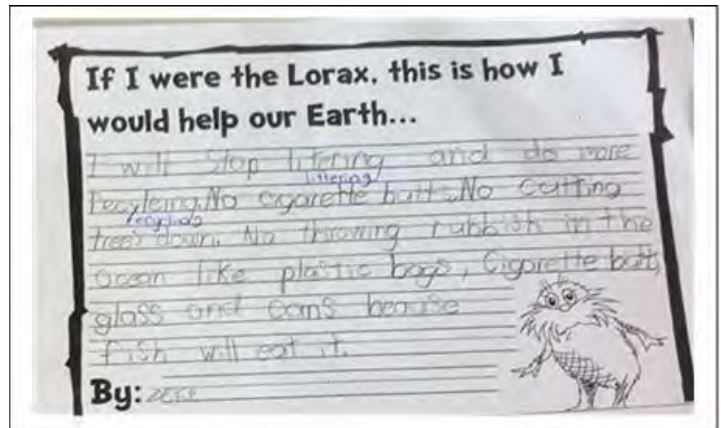 If I were the Lorax, this is how I
would help our Earth...
I will Stop litering and do more
littering
recyleing. No cigarette butts. No cutting
recycling
trees down. No throwing rubbish in the
ocean like plastic bags, Cigarette butts,
glass and cans beause
fish will eat it.
By: